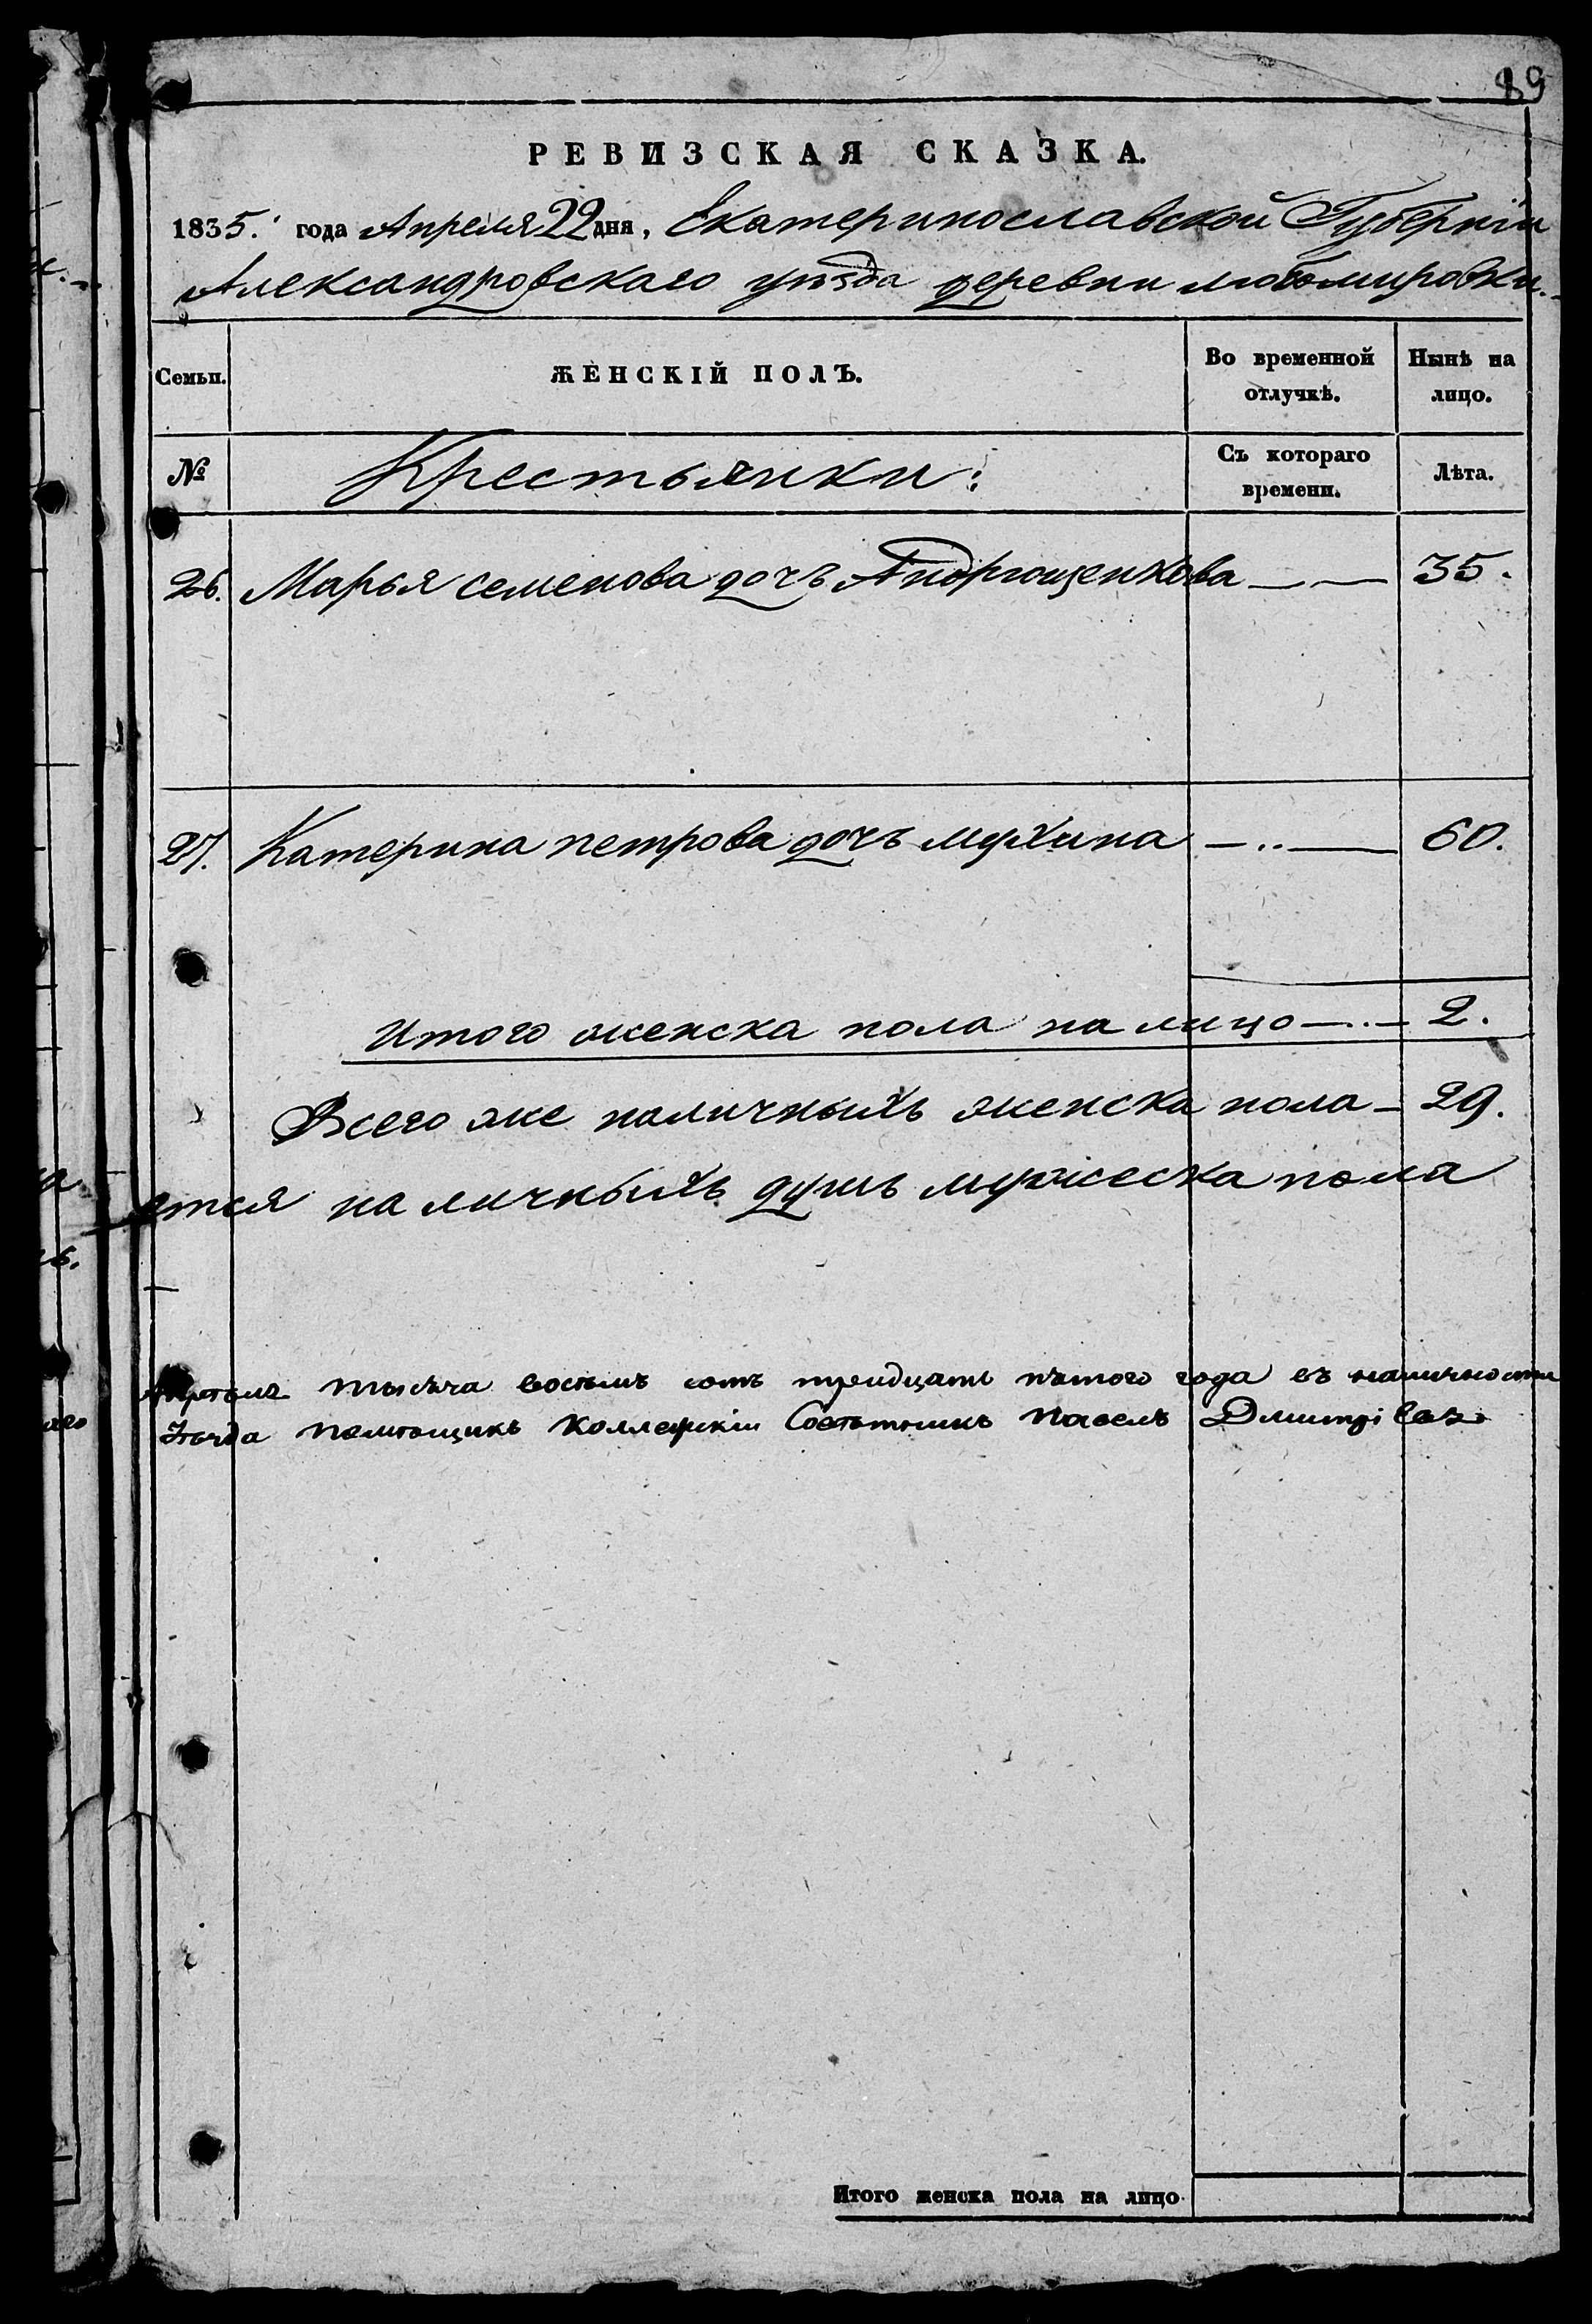 89
РЕВИЗСКАЯ СКАЗКА.
1835. года Апреля 22 дня, Екатеринославской Губерніи
Александровскаго уѣзда деревни Любомировки.
Семьи. ЖЕНСКІЙ ПОЛЪ. Во временной отлучкѣ. Нынѣ на лицо.
№ Крестьянки: Съ котораго времени. Лѣта.
26. Марья семенова дочь Андрющенкова — — 35.
27. Катерина петрова дочь мухина — .. — 60.
Итого женска пола на лицо — .. — 2.
Всего же наличныхъ женска пола — 29.
ется наличныхъ душъ мужеска пола
тысяча восемь сотъ тридцать пятого года въ наличности
помѣщикъ Коллежскіи Советникъ Павелъ
Итого женска пола на лицо